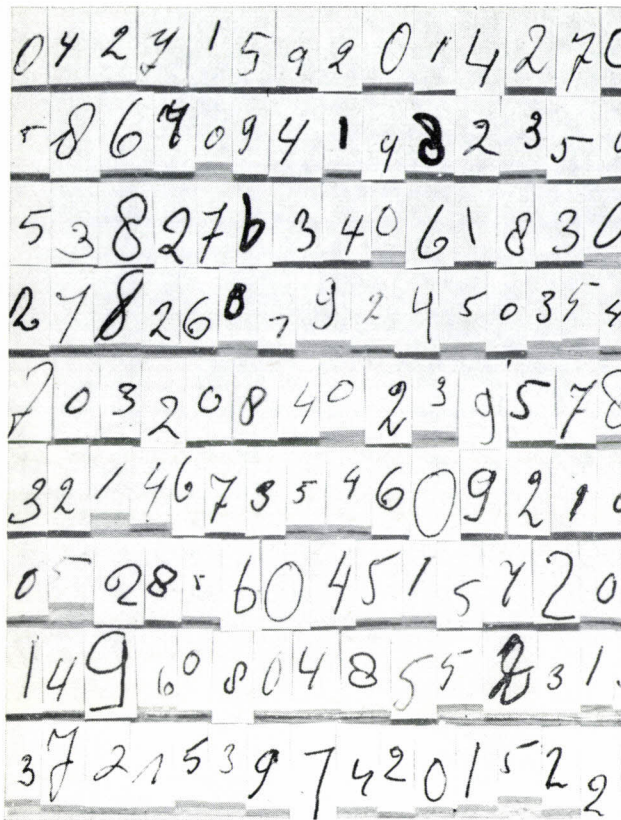 0 4 2 7 1 5 9 2 0 1 4 2 7 0
5 8 6 7 0 9 4 1 9 8 2 3 5
5 3 8 2 7 6 3 4 0 6 1 8 3 0
2 7 8 2 6 8 7 9 2 4 5 0 3 5 4
7 0 3 2 0 8 4 0 2 3 9 5 7 8
3 2 1 4 6 7 3 5 4 6 0 9 2 1
0 5 2 8 5 6 0 4 5 1 5 7 2 0
1 4 9 6 0 8 0 4 8 5 5 2 3 1
3 7 2 1 5 3 9 7 4 2 0 1 5 2 2